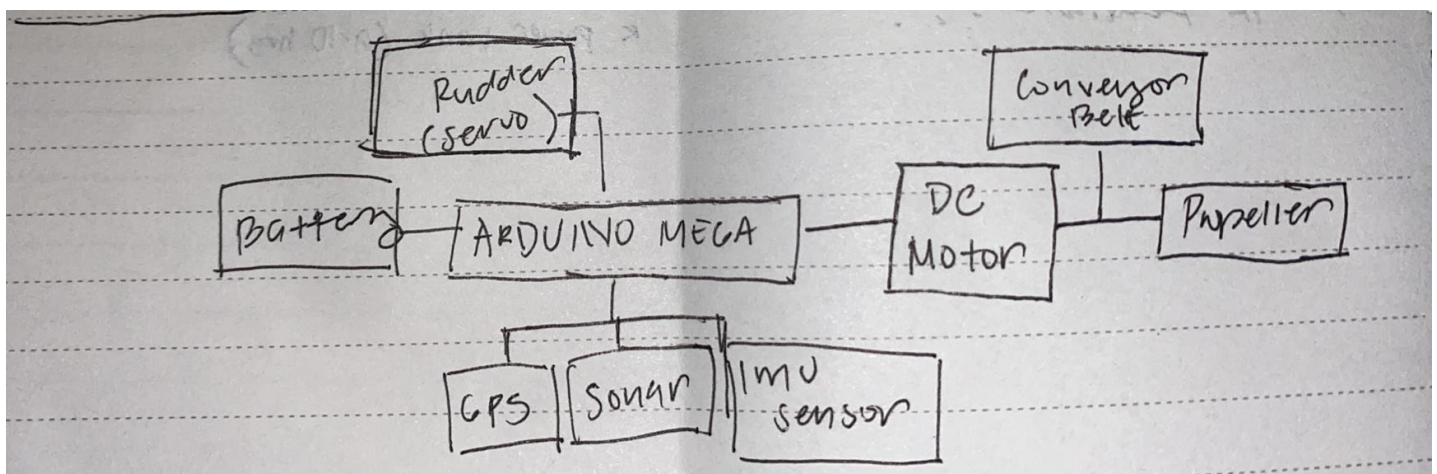 Rudder
(servo)
Conveyor
Belt
Battery
ARDUINO MEGA
DC
Motor
Propeller
GPS
Sonar
IMU
sensor